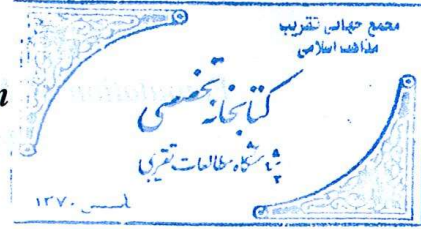 مجمع جهانی تقریب
مذاهب اسلامی
کتابخانه تخصصی
پژوهشگاه مطالعات تقریبی
تأسیس ۱۳۷۰
n